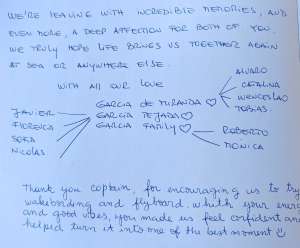 WE'RE LEAVING WITH INCREDIBLE MEMORIES, AND
EVEN MORE, A DEEP AFFECTION FOR BOTH OF YOU.
WE TRULY HOPE LIFE BRINGS US TOGETHER AGAIN
AT SEA OR ANYWHERE ELSE.
WITH ALL OUR LOVE
ALVARO
CATALINA
WENCESLAO
TOBIAS
GARCIA DE MIRANDA ♡
JAVIER
FIORELLA
SOFIA
NICOLAS
GARCIA TEJADA ♡
GARCIA FAMILY ♡
ROBERTO
MONICA
Thank you captain, for encouraging us to try
wakeboarding and flyboard, whith your energy
and good vibes, you made us feel confident and
helped turn it into one of the best moment ☺